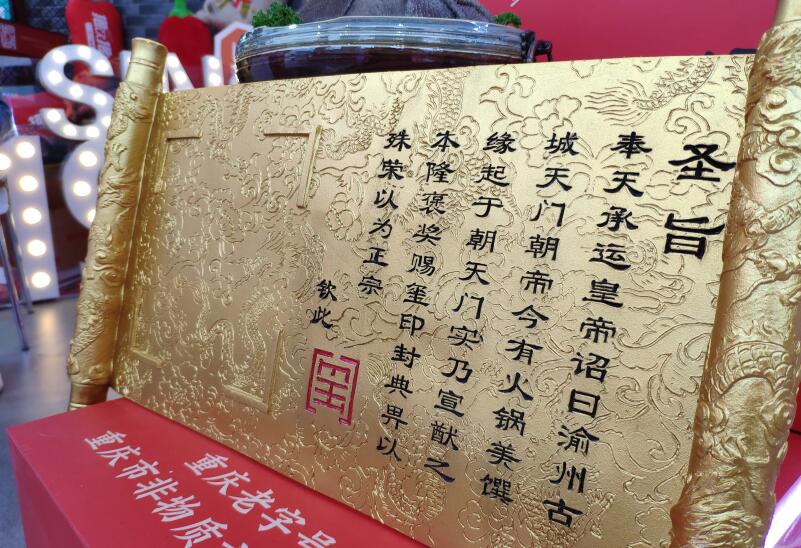 圣旨
奉天承运皇帝诏曰渝州古
城天门朝帝今有火锅美馔
缘起于朝天门实乃宣猷之
本隆褒奖赐玺印封典畀以
殊荣以为正宗
钦此
重庆老字号
重庆市非物质
SIN